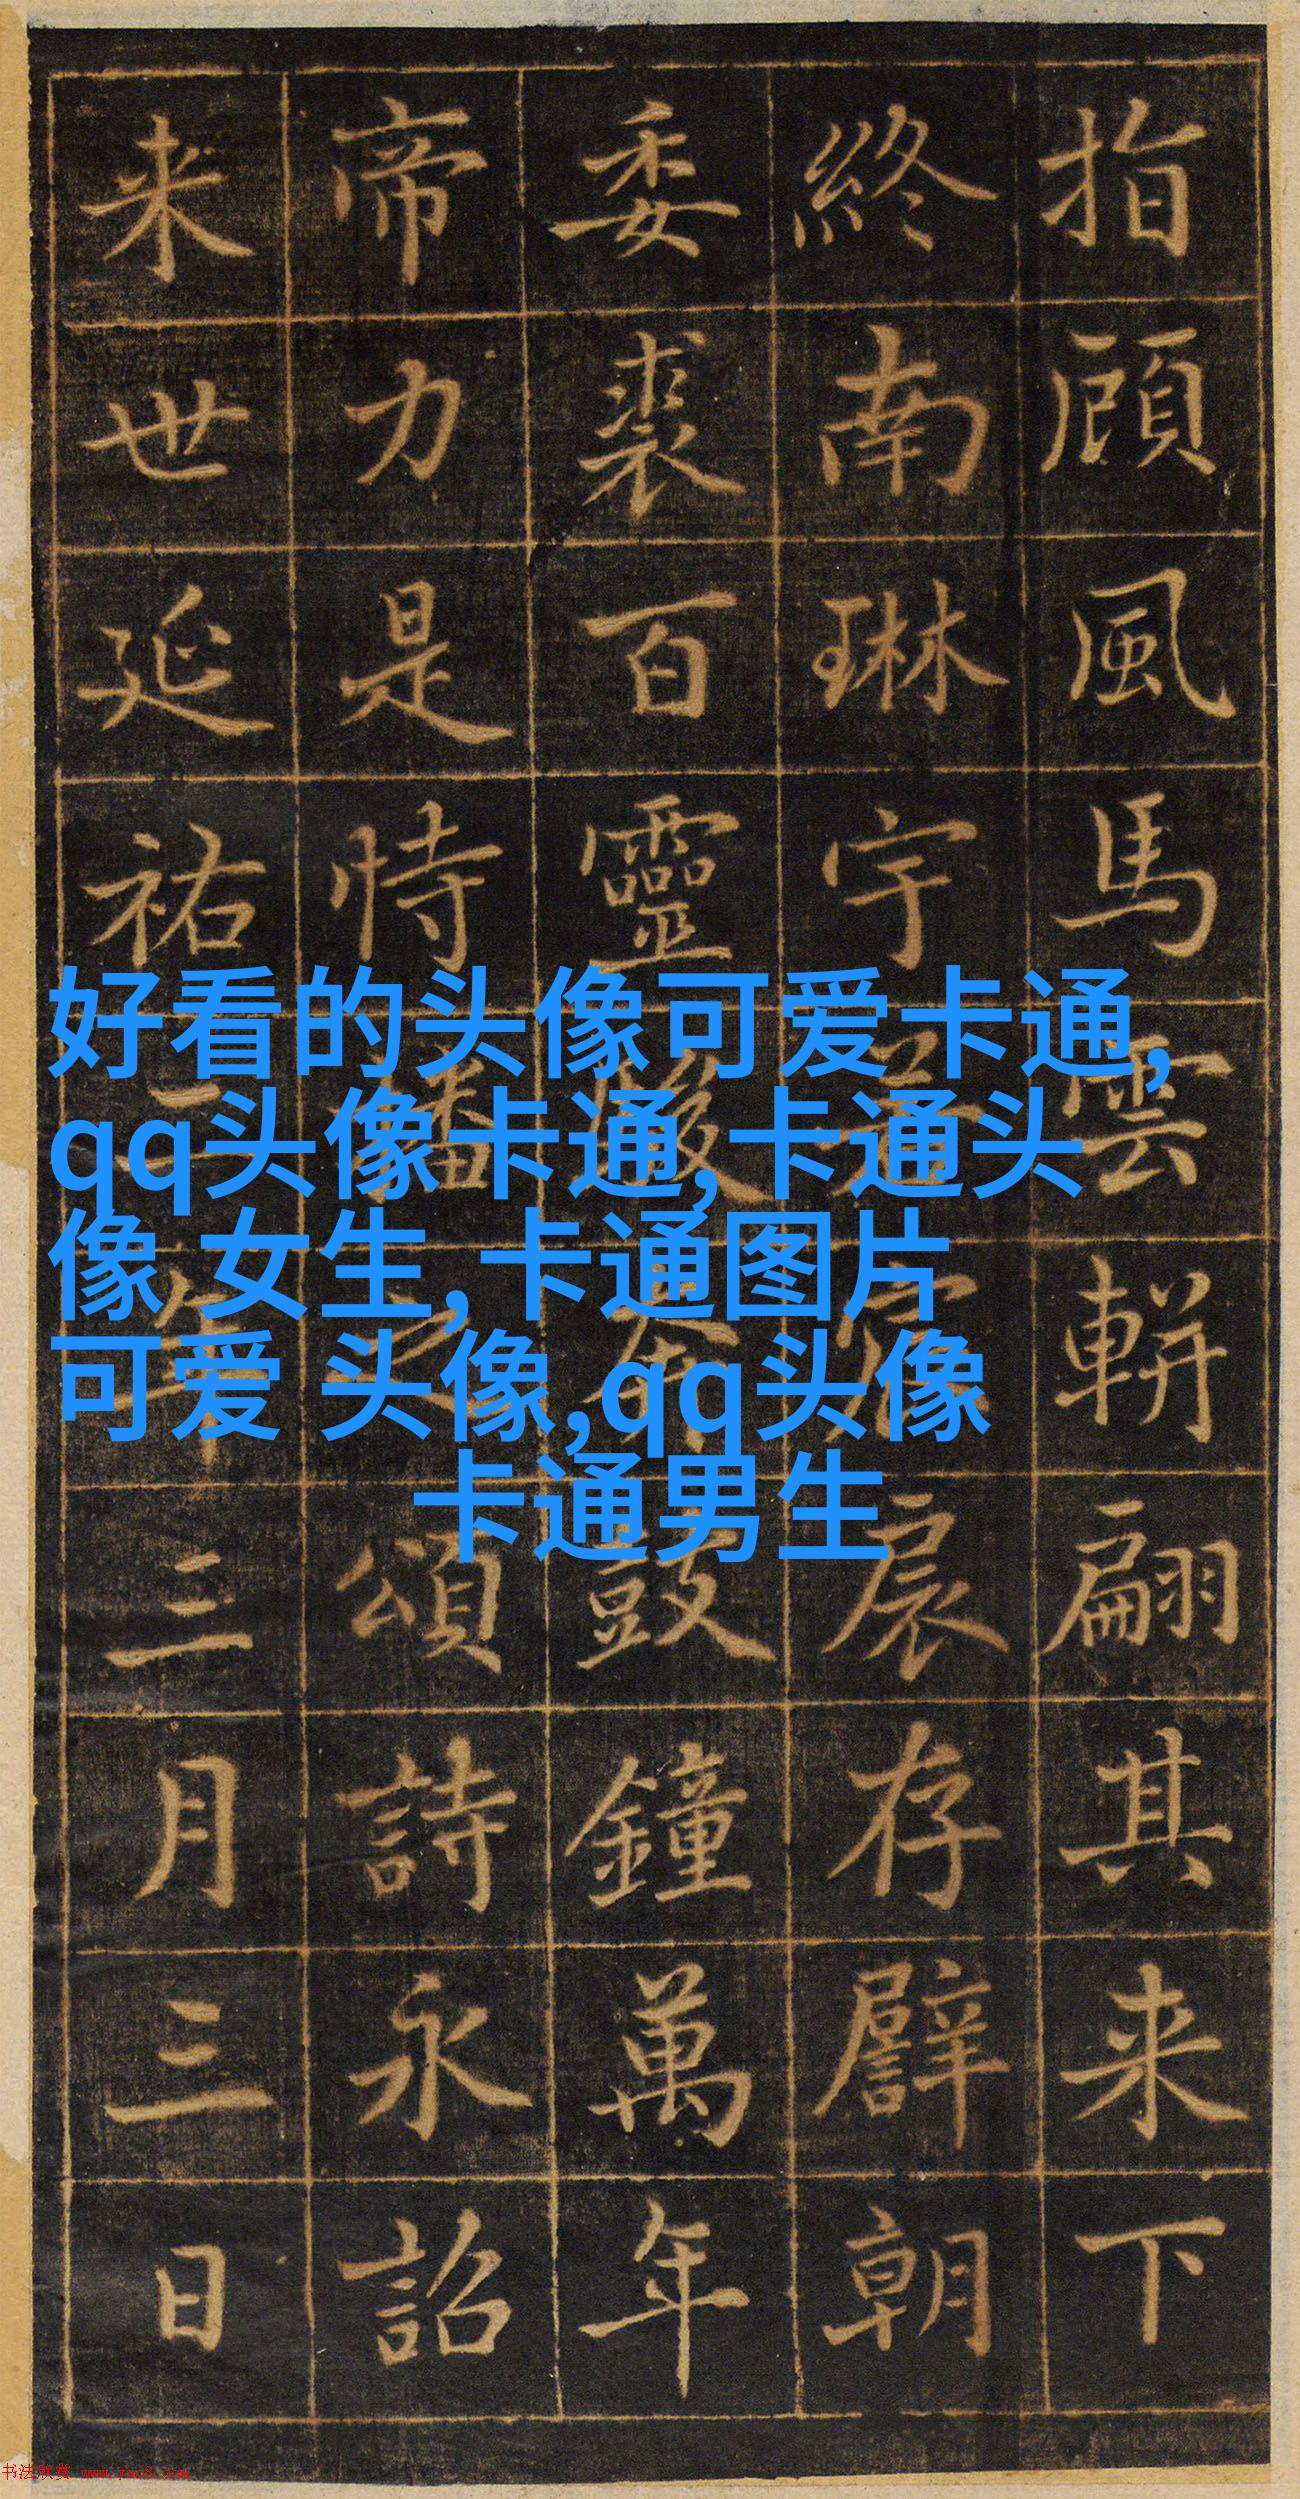 指顧風馬雲輧翩其来下
終南琳宇扆存譬朝
委裘百靈鼓鐘萬年
帝力是恃播之頌詩永詔
来世延祐二年三月三日
好看的头像可爱卡通,
qq头像卡通,卡通头
像 女生,卡通图片
可爱 头像,qq头像
卡通男生
书法欣赏 www.yac8.com